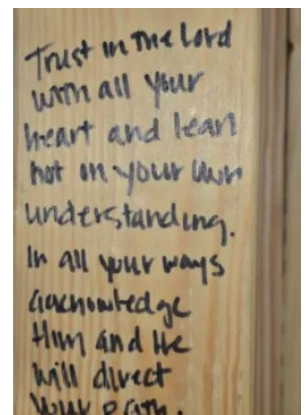 Trust in the Lord
with all your
heart and lean
not on your own
understanding.
In all your ways
acknowledge
Him and He
will direct
your path.